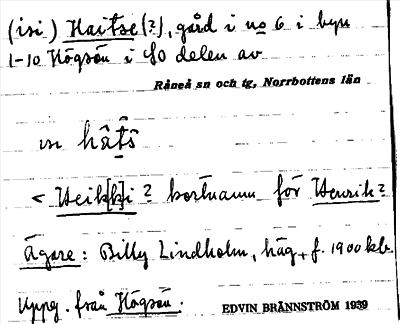 (isi) Haitse (?), gård i no 6 i byn
1-10 Högsön i SO delen av
Råneå sn och tg, Norrbottens län
isi hâťs̭
< Heik[k]i ? kortnamn för Henrik?
Ägare: Billy Lindholm, häg, f. 1900 kb.
Uppg. från Högsön. EDVIN BRÄNNSTRÖM 1939